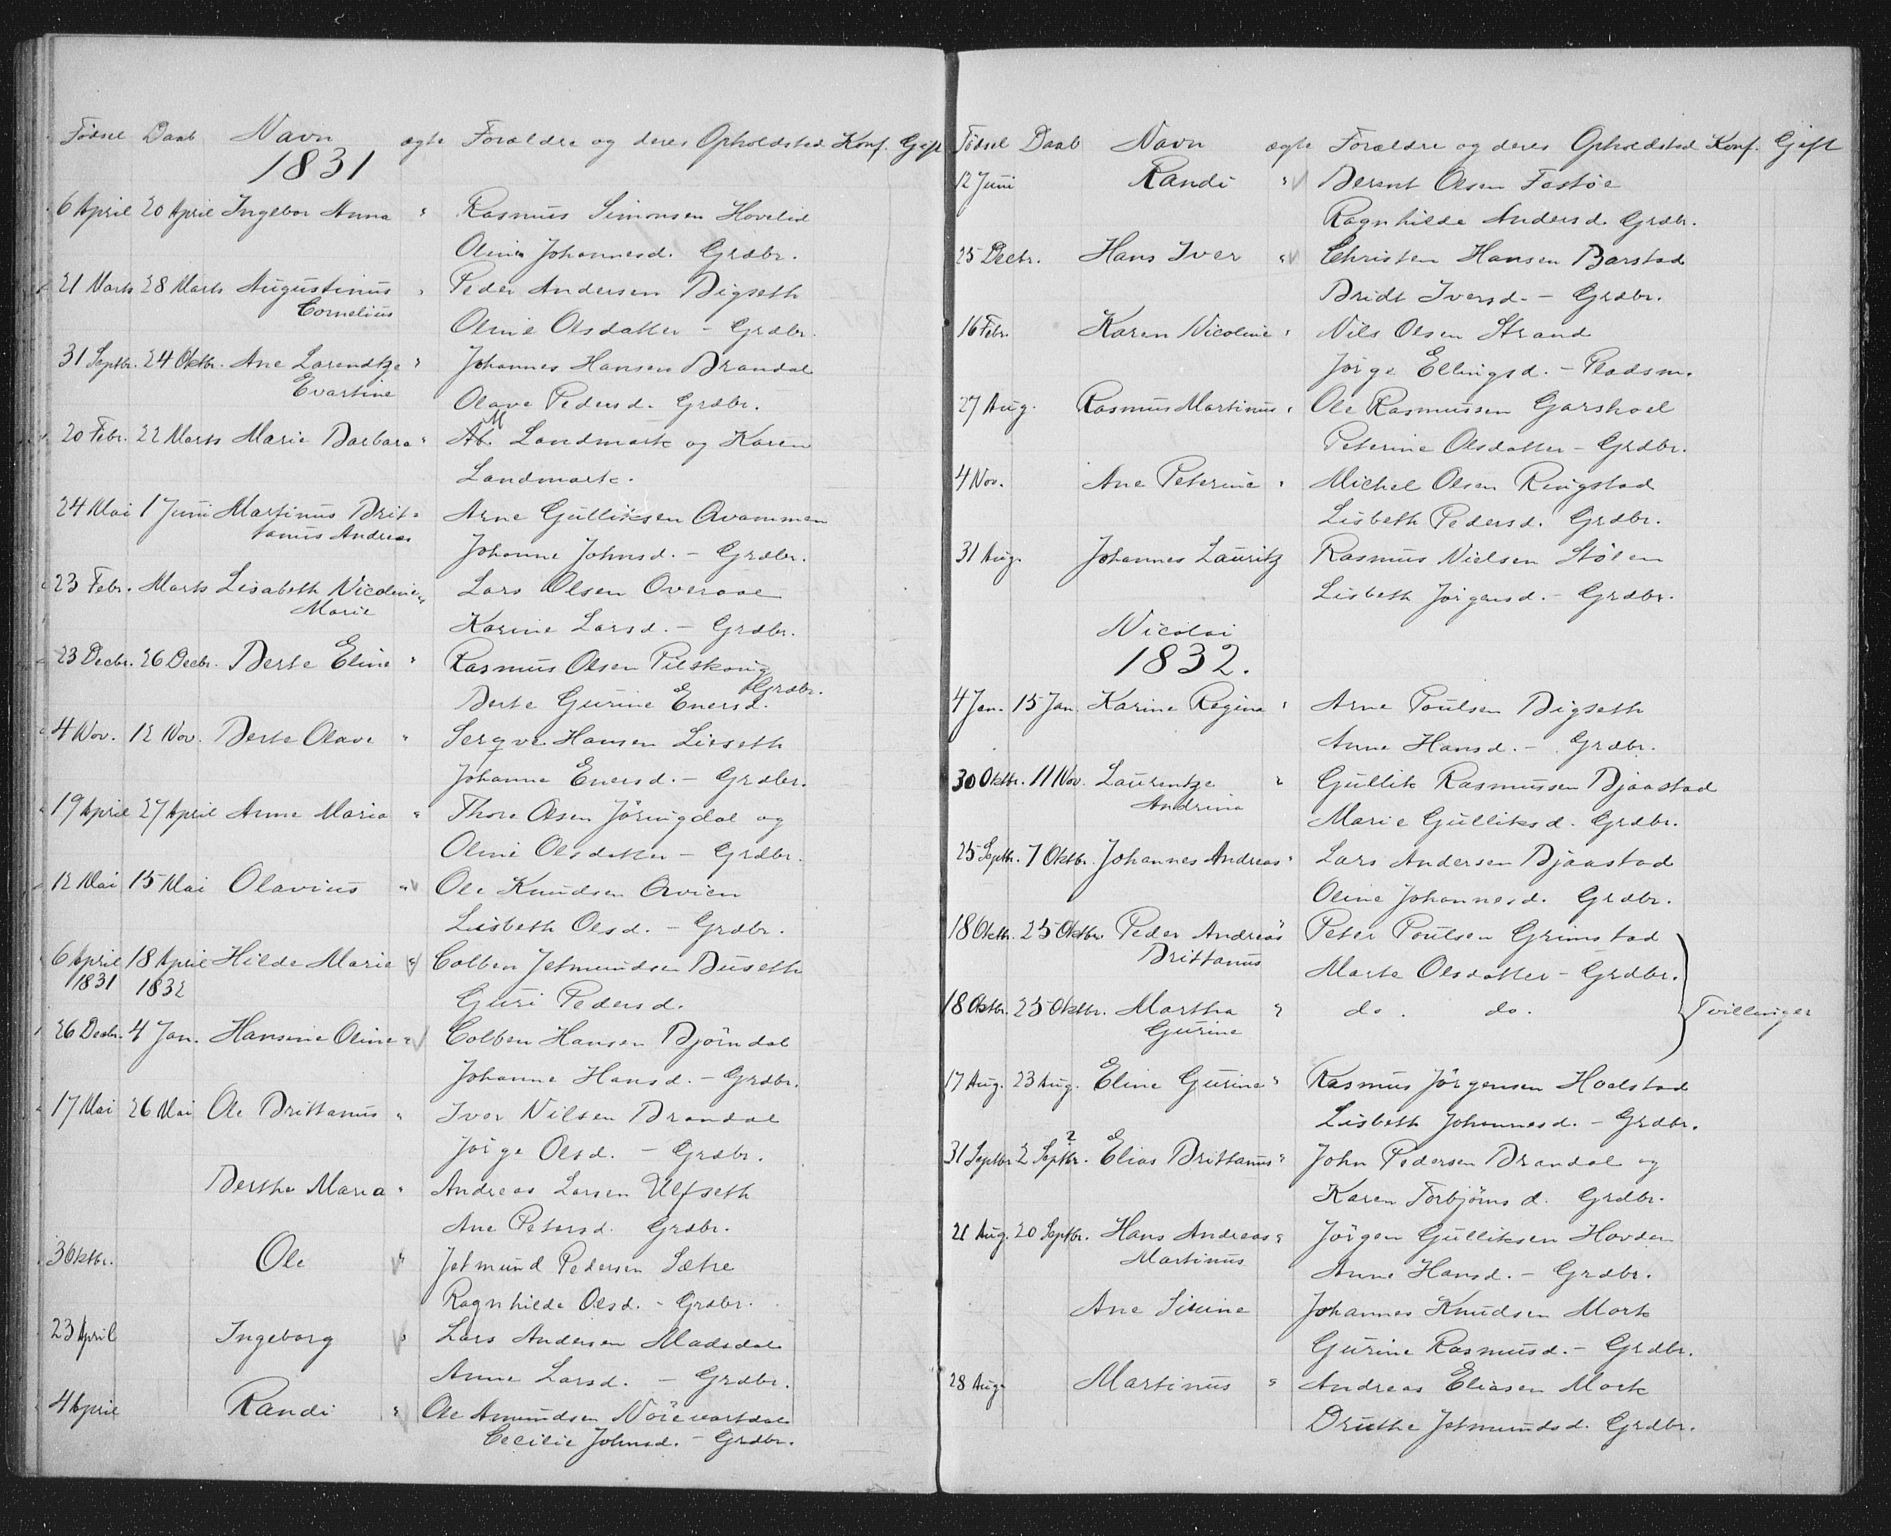 Fødsel Daab Navn ægte Forældre og deres Opholdsted Konf. Gift
1831
6 April 20 April Ingebor Anna " Rasmus Simonsen Hovelid
Oline Johannesd. Grdbr.
21 Marts 28 Marts Augustinus " Peder Andersen Digseth
Cornelius
Oline Olsdatter - Grdbr.
31 Septbr. 24 Oktbr. Ane Larendtze " Johannes Hansen Brandal
Evartine
Olave Pedersd. Grdbr.
20 Febr. 22 Marts Marie Barbara " Landmark og Karen
Landmark.
24 Mai 1 Juni Martinus Brit- " Arne Gulliksen Qvammen
tanus Andreas
Johanne Johnsd. - Grdbr.
23 Febr. Marts Lisabeth Nicoline " Lars Olsen Overaae
Marie
Karine Larsd. - Grdbr.
23 Decbr. 26 Decbr. Berte Eline " Rasmus Olsen Pilskoug
Grdbr.
Berte Gurine Enersd.
4 Nov. 12 Nov. Berte Olave " Serqve Hansen Lieseth
Johanne Enersd. - Grdbr.
19 April 27 April Anne Maria " Thore Olsen Jøringdal og
Oline Olsdatter - Grdbr.
12 Mai 15 Mai Olavius " Ole Knudsen Qvien
Lisbeth Olsd. - Grdbr.
6 April 18 April Hilde Marie " Colben Jetmundsen Buseth
1831 1832
Guri Pedersd.
26 Decbr. 4 Jan. Hansine Oline " Colben Hansen Bjørndal
Johanne Hansd. - Grdbr.
17 Mai 26 Mai Ole Brittanus " Iver Nilsen Brandal
Jørge Olsd. - Grdbr.
Berthe Maria " Andreas Larsen Ulfseth
Ane Petersd. Grdbr.
3 Oktbr. Ole " Jetmund Pedersen Sætre
Ragnhilde Olsd. - Grdbr.
23 April Ingeborg " Lars Andersen Madsdal
Anne Larsd. - Grdbr.
4 April Randi " Ole Amundsen Nörevartdal
Cecilie Johnsd. - Grdbr.
Fødsel Daab Navn ægte Forældre og deres Opholdsted Konf. Gift
12 Juni Randi " Berent Olsen Festøe
Ragnhilde Andersd. Grdbr.
25 Decbr. Hans Iver " Christen Hansen Barstad
Bridt Iversd. - Grdbr.
16 Febr. Karen Nicoline " Nils Olsen Strand
Jørge Ellingsd. - Pladsm.
27 Aug. Rasmus Martinus " Ole Rasmussen Garshoel
Peterine Olsdatter - Grdbr.
4 Nov. Ane Peterine " Michel Olsen Ringstad
Lisbeth Pedersd. Grdbr.
31 Aug. Johannes Lauritz Rasmus Nielsen Støien
Lisbeth Jørgensd. - Grdbr.
Nicolai
1832.
4 Jan. 15 Jan. Karine Regine " Arne Poulsen Digseth
Anne Hansd. - Grdbr.
30 Oktbr. 11 Nov. Laurentze " Gullik Rasmussen Bjaastad
Andrina
Marie Gulliksd. Grdbr.
25 Septbr. 7 Oktbr. Johannes Andreas " Lars Andersen Bjaastad
Oline Johannesd. Grdbr.
18 Oktbr. 25 Oktbr. Peder Andreas " Peter Poulsen Grimstad
Brittanus
Marte Olsdatter - Grdbr.
18 Oktbr. 25 Oktbr. Martha " do. do. Tvillinger
Gurine
17 Aug. 23 Aug. Eline Gurine " Rasmus Jørgensen Haalstad
Lisbeth Johannesd. - Grdbr.
31 Septbr 2 Septbr.? Elias Brittanus " John Pedersen Brandal og
Karen Torbjørnsd. Grdbr.
21 Aug. 20 Septbr. Hans Andreas " Jørgen Gulliksen Hovden
Martinus
Anne Hansd. - Grdbr.
Ane Sixine Johannes Knudsen Mork
Gurine Rasmusd. - Grdbr.
28 Aug. Martinus " Andreas Eliasen Mork
Druthe Jetmundsd. Grdbr.